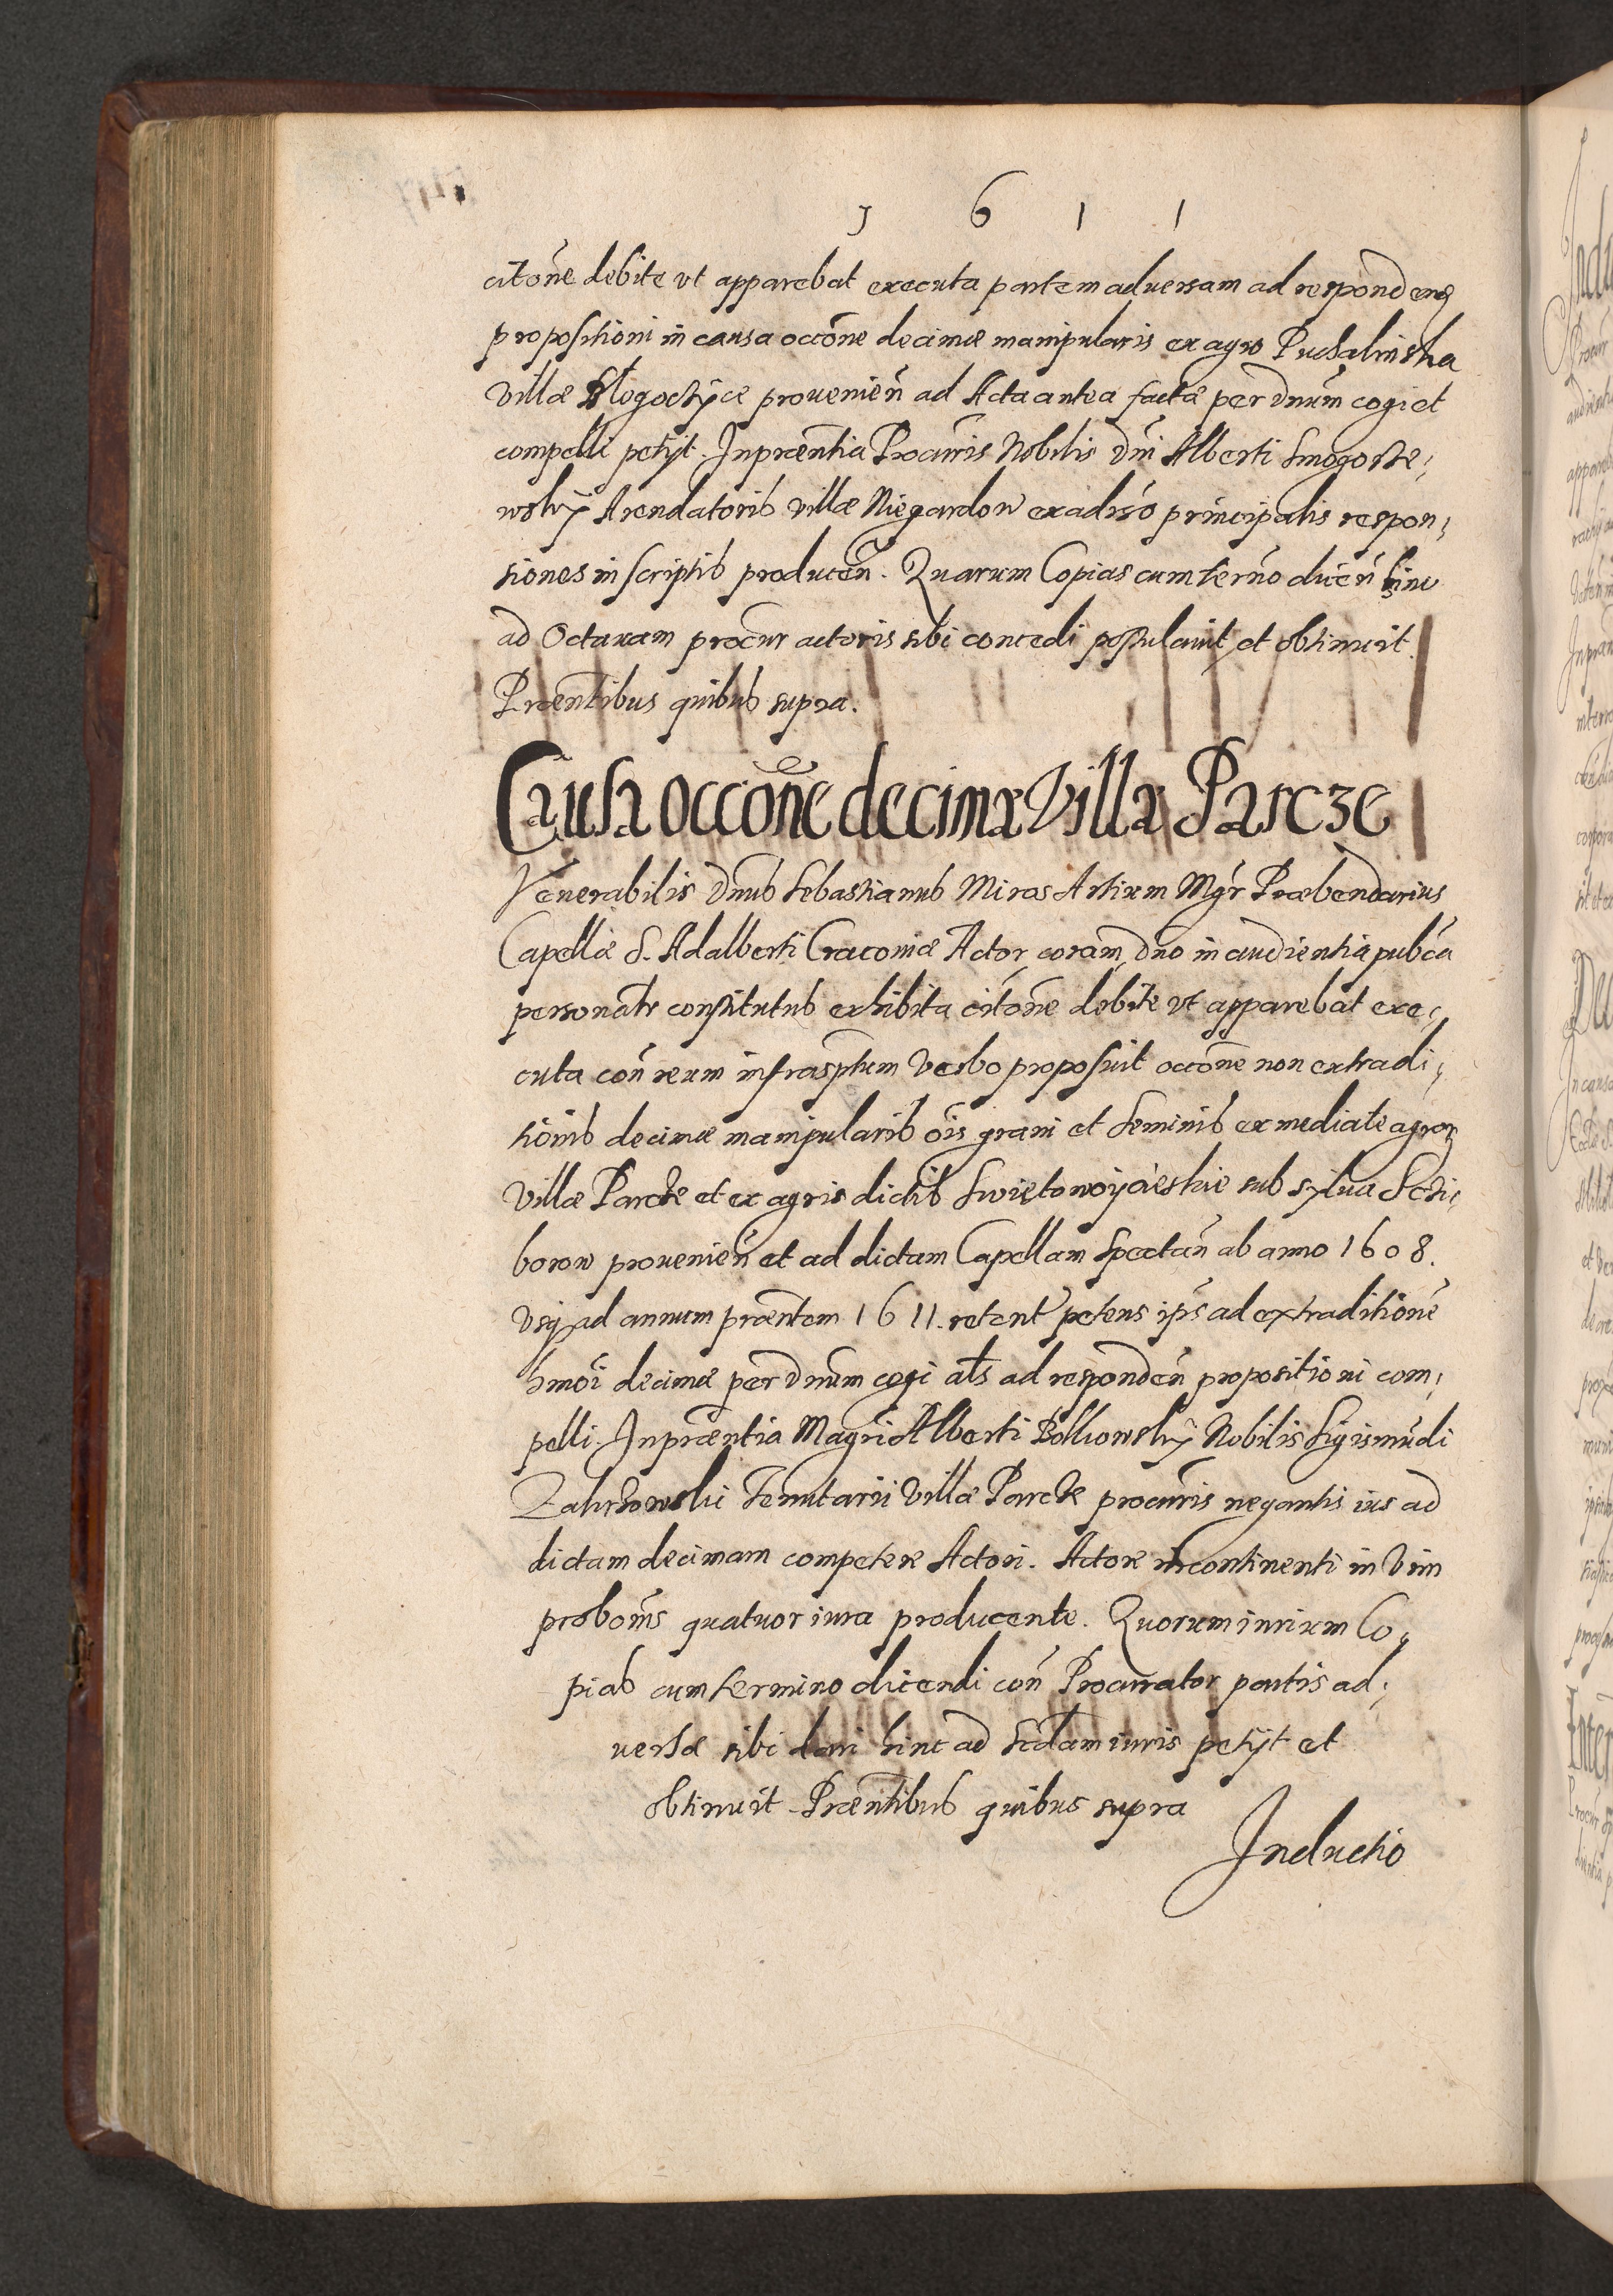 1 6 1 1
citõne debite vt apparebat executa partem aduersam ad responden̄
propositioni in causa occõne decimæ manipularis ex agro Puchalinska
villæ Klegoczyce prouenien̄ ad Acta antea factæ per dnūm cogi et
compelli petijt. In præntia Procuris Nobilis Dni Alberti Smogorze¿
wskÿ Arendatoris villæ Niegardow ex adũso principalis respon¿
siones in scriptis producen̄. Quarum Copias cum termño dicen̄ hinc
ad Octauam procur actoris sibi concedi postulauit et obtinuit.
Præntibus quibus supra.
Causa occõne decimæ Villæ Parcze
Venerabilis Dnus Sebastianus Miros Artium Mgr̄ Præbendarius
Capellæ S. Adalberti Cracouiæ Actor coram dno in audientia pubca
personalr constitutus exhibita citõne debite vt apparebat exe¿
cuta con̄ reum infrasptum verbo proposuit occõne non extradi¿
tionis decimæ manipularis õis grani et seminis ex medietate agror
villæ Parcze et ex agris dictis Swiętowoyćieskie sub sylua Sczi¿
borow prouenien̄ et ad dictam Capellam spectan̄ ab anno 1608.
vsq; ad annum præntem 1611. retent petens ip̄s ad extraditionē
hmõi decimæ per Dnūm cogi als ad responden̄ propositioni com¿
pelli. In præntia Magri Alberti Bolkowskÿ Nobilis Sigismūdi
Zakrzowski Tenutarii Villæ Parcze procuris negantis ius ad
dictam decimam competere Actori. Actore incontinenti in vim
probonis quatuor iura producente. Quorum iurium Co¿
pias cum termino dicendi con̄ Procurator partis ad¿
uersæ sibi dari hinc ad Scdam iuris petijt et
obtinuit. Præntibus quibus supra
Inductio